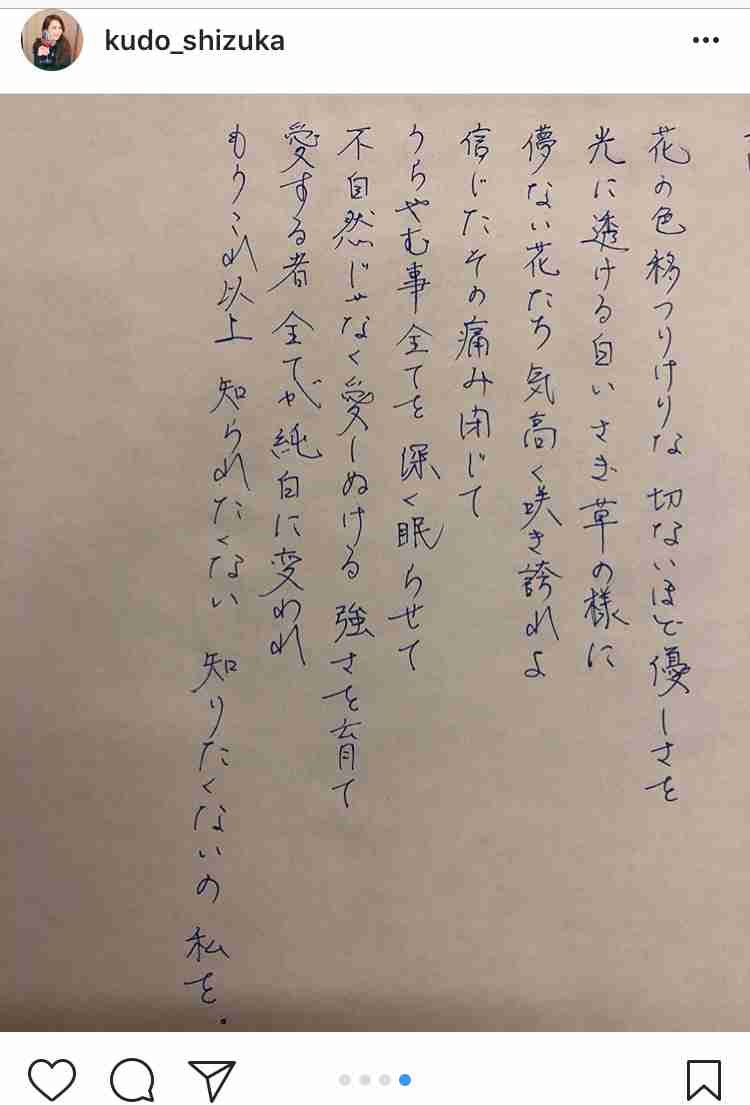 kudo_shizuka
花の色移つりけりな 切ないほど優しさを
光に透ける白いさき草の様に
儚ない花たち 気高く咲き誇れよ
信じたその痛み閉じて
うらやむ事全てを 深く眠らせて
不自然じゃなく愛しぬける 強さを育て
愛する者 全てが純白に変われ
もうこれ以上 知られたくない 知りたくないの 私を.